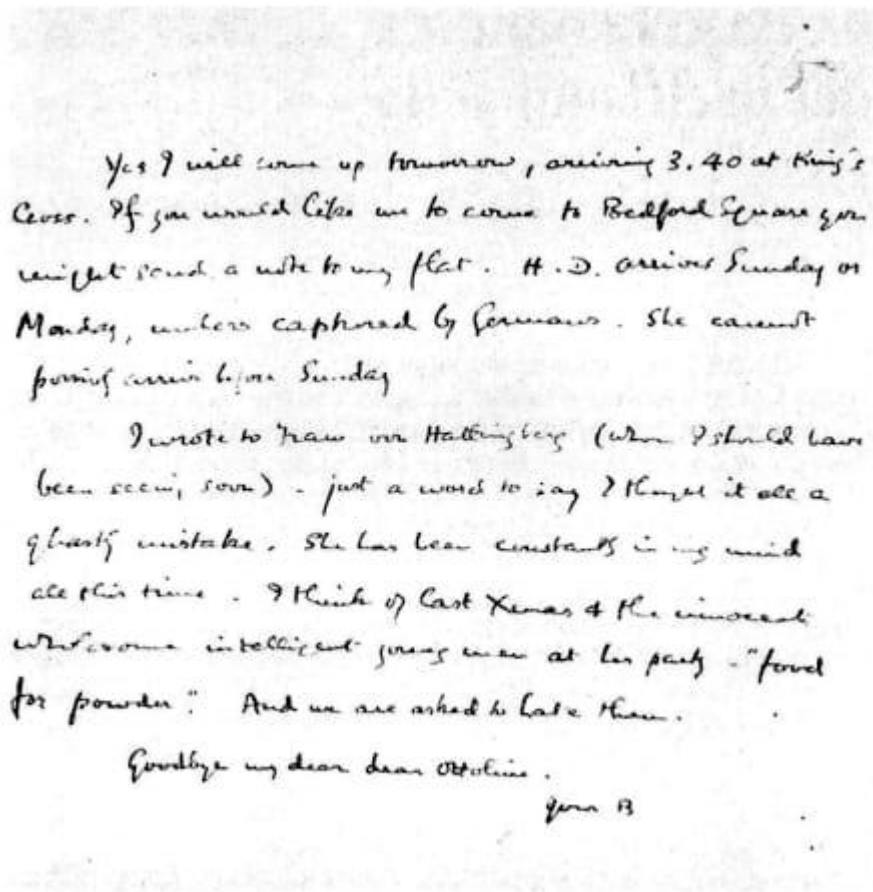 5
Yes I will come up tomorrow, arriving 3.40 at King's
Cross. If you would like me to come to Bedford Square you
might send a note to my flat. H.D. arrives Sunday or
Monday, unless captured by Germans. She cannot
possibly arrive before Sunday
I wrote to Frau von Hattingberg (whom I should have
been seeing soon) - just a word to say I thought it all a
ghastly mistake. She has been constantly in my mind
all this time. I think of last Xmas & the innocent
wholesome intelligent young men at her party - "food
for powder". And we are asked to hate them.
Goodbye my dear dear Ottoline.
Your B